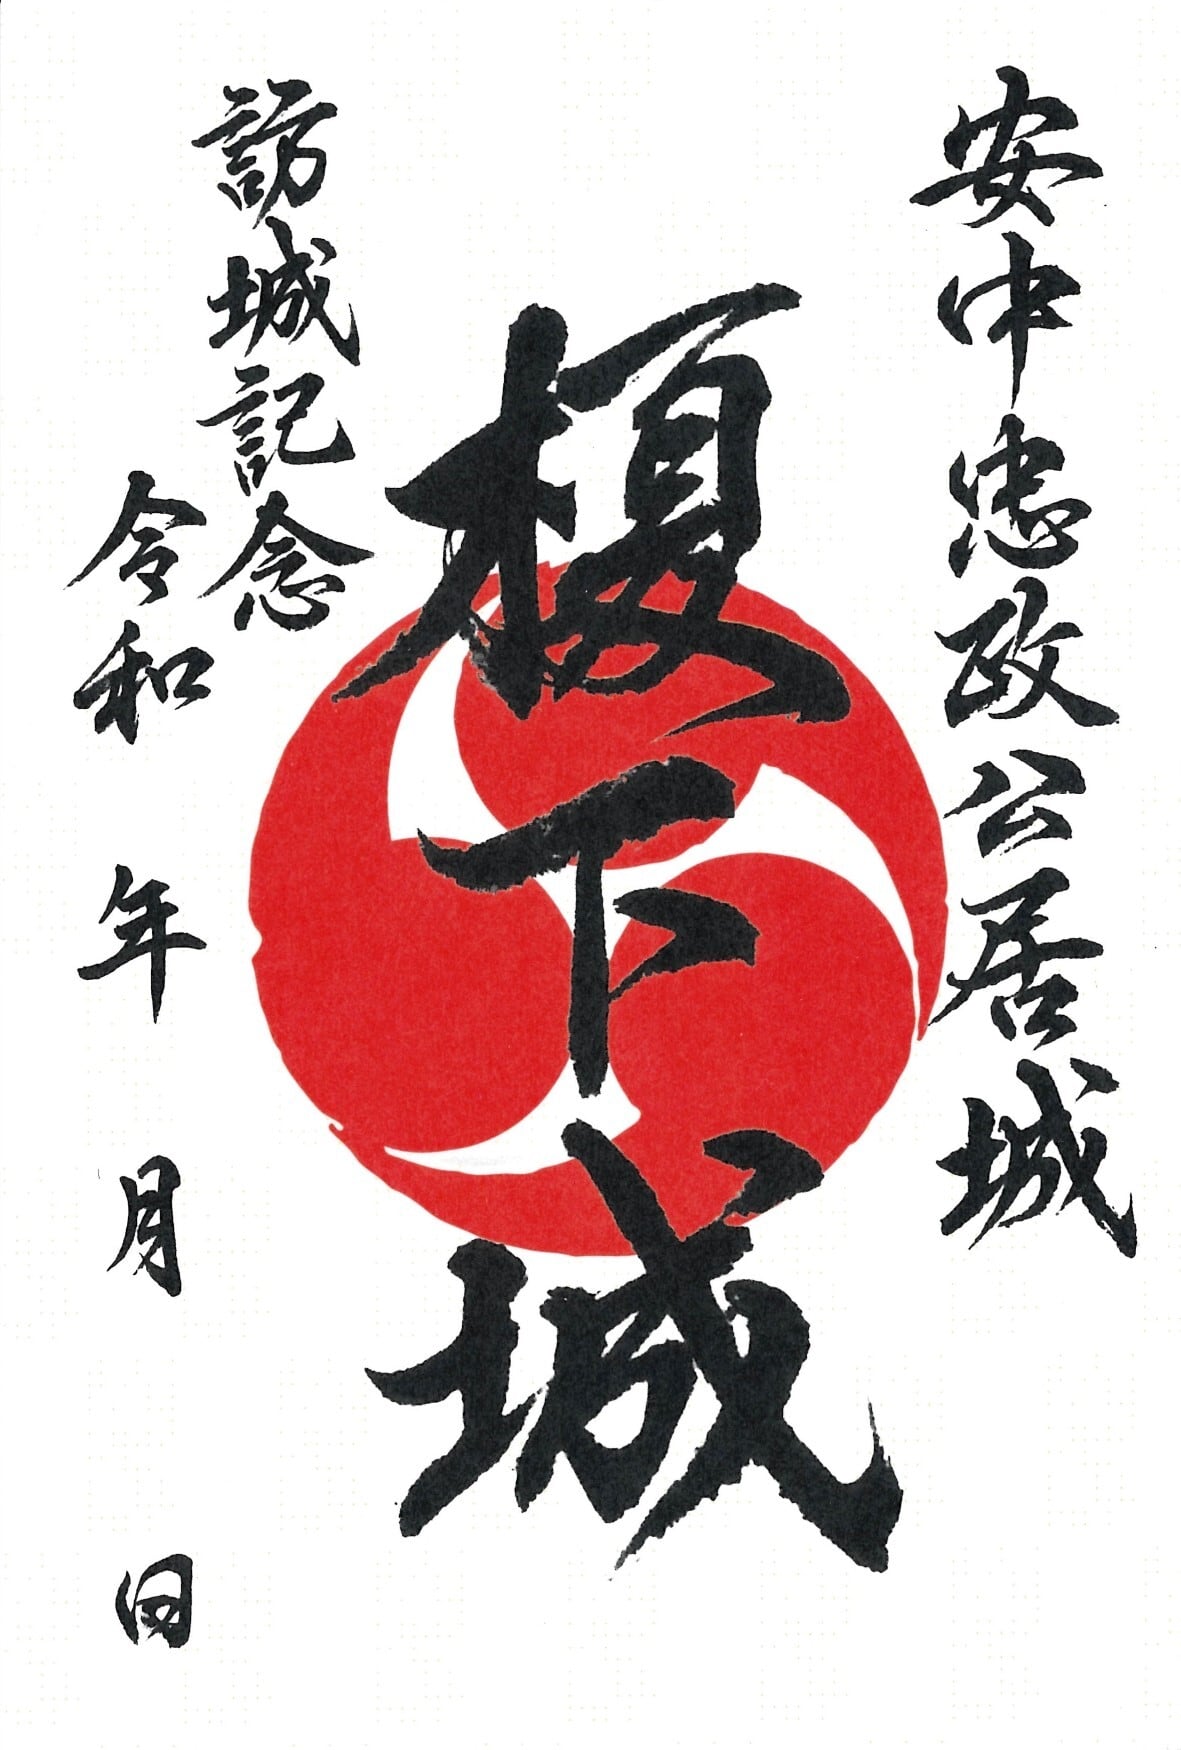 安中忠政公居城
榎下城
訪城記念
令和 年 月 日